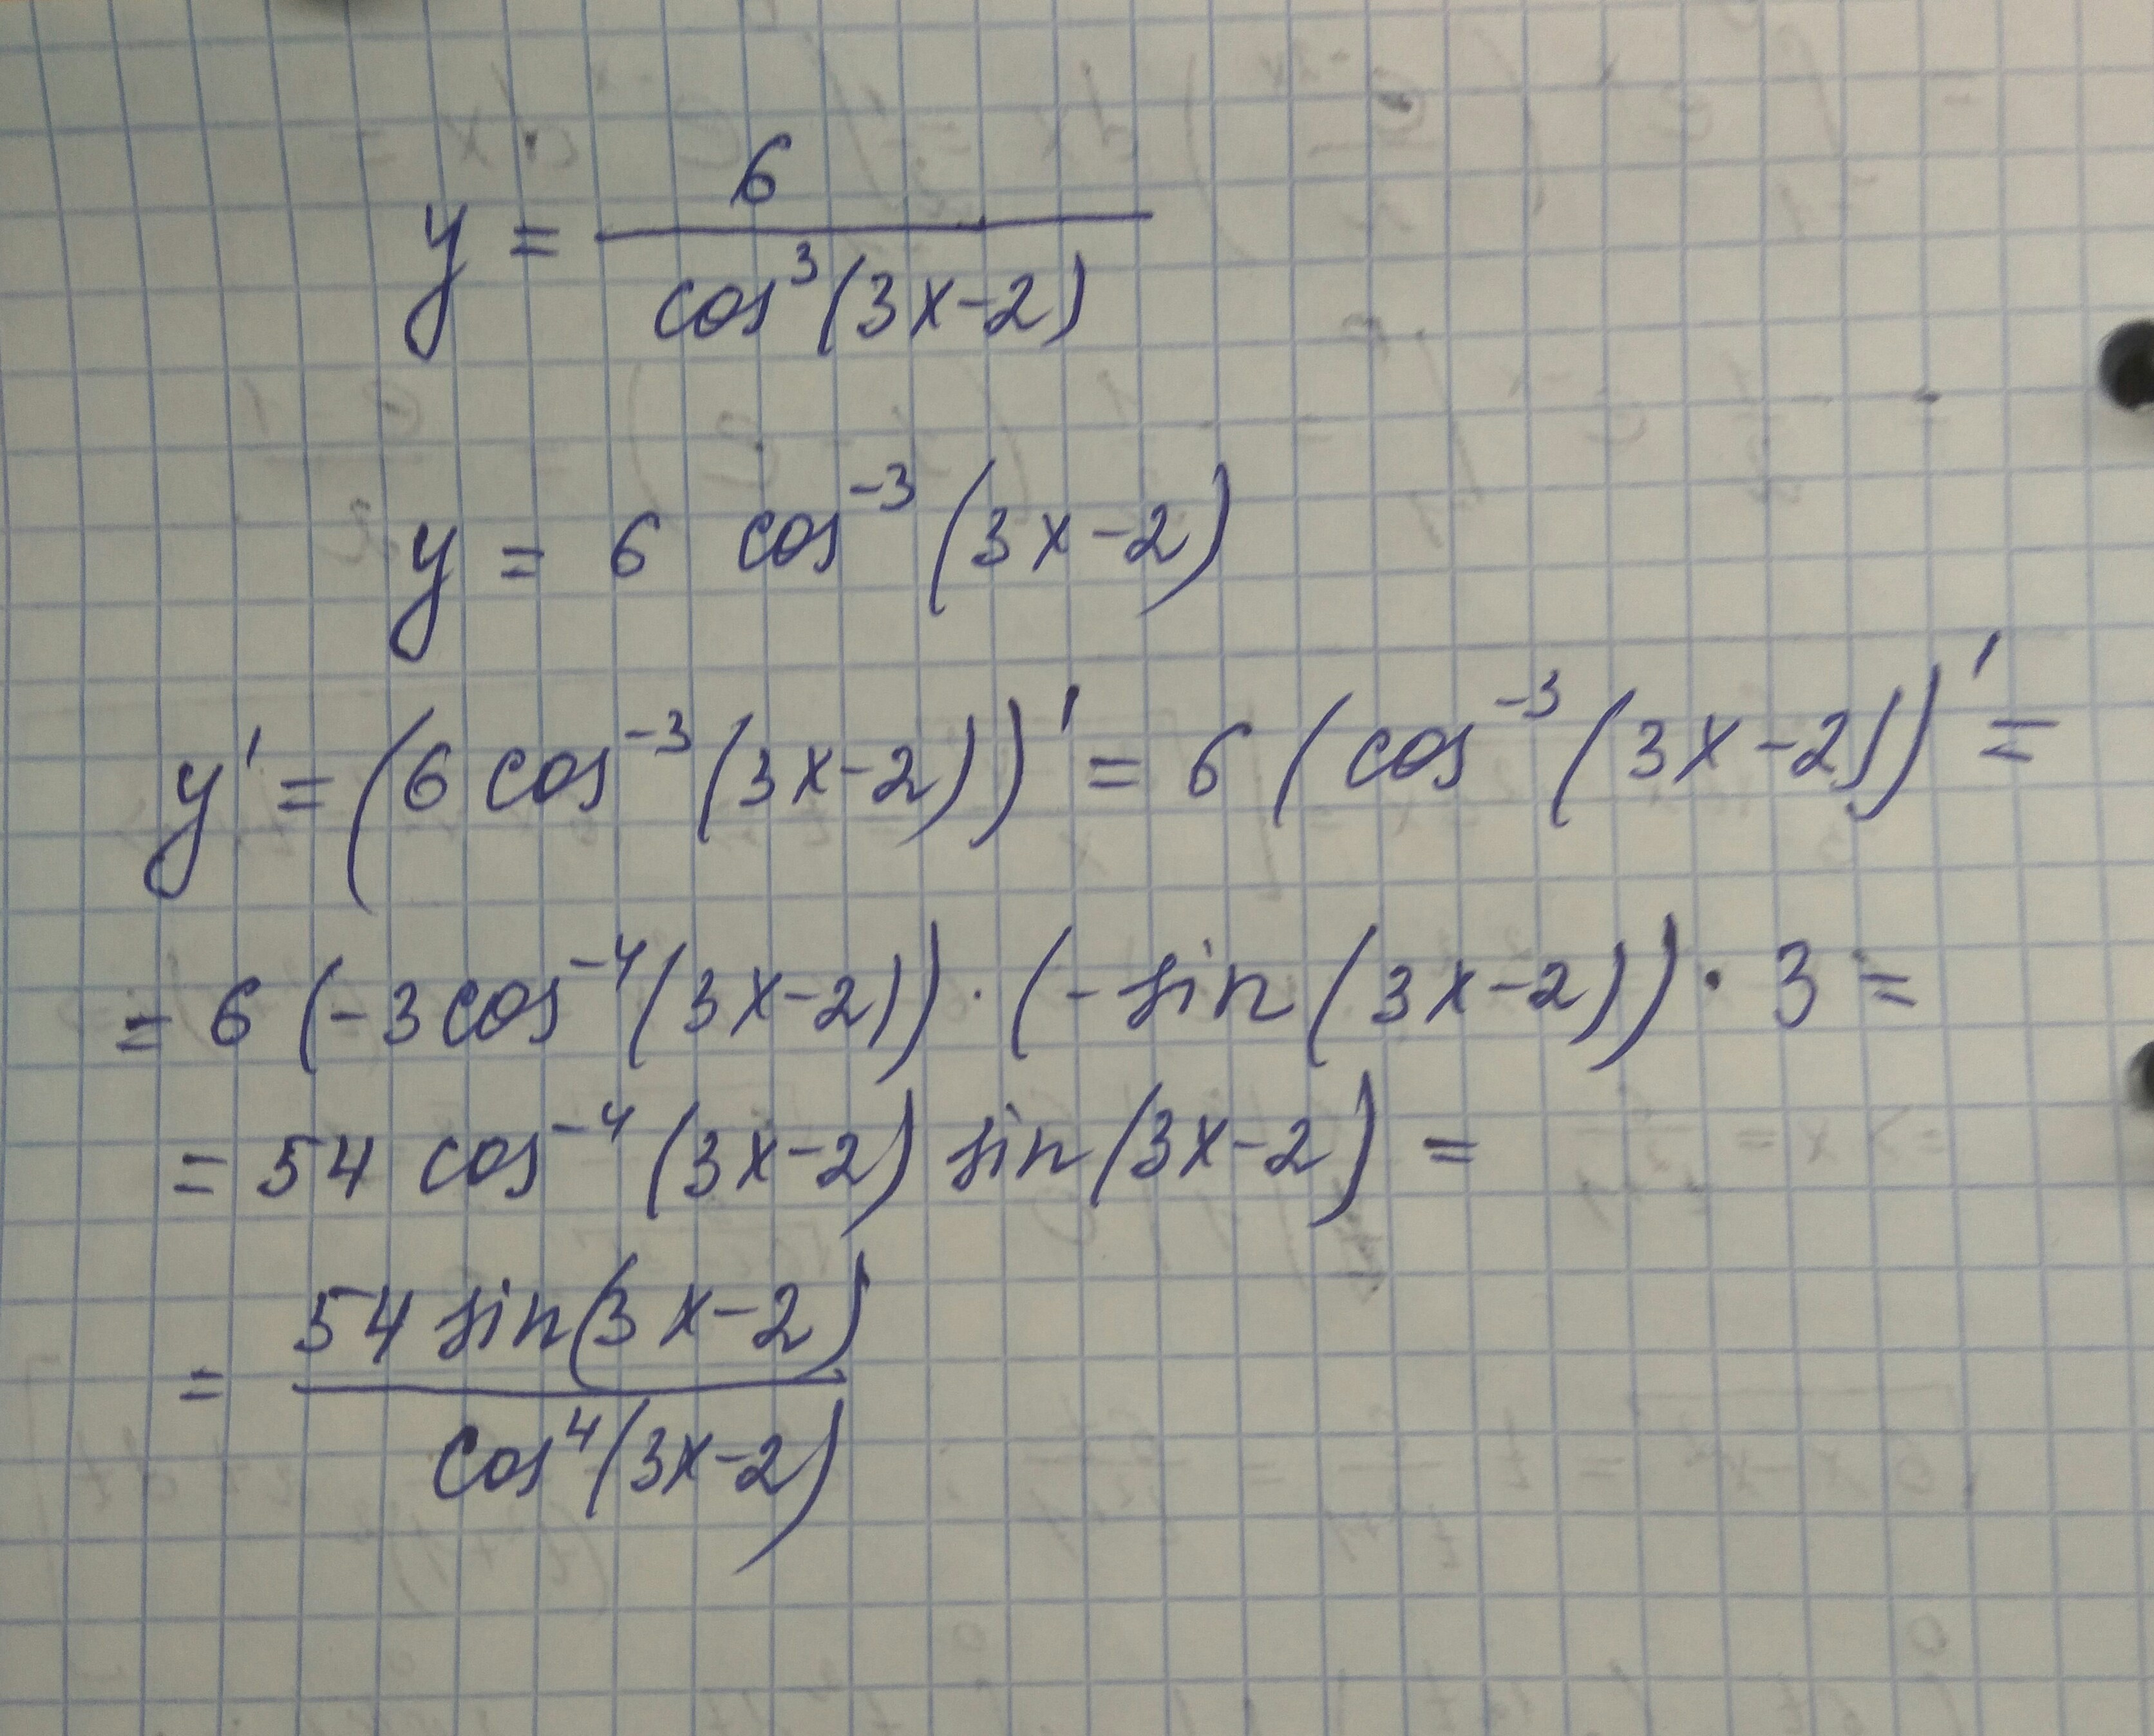 y = 6 / cos³(3x-2)
y = 6 cos⁻³(3x-2)
y' = (6 cos⁻³(3x-2))' = 6(cos⁻³(3x-2))' =
= 6(-3cos⁻⁴(3x-2))·(-sin(3x-2))·3 =
= 54 cos⁻⁴(3x-2) sin(3x-2) =
= 54 sin(3x-2) / cos⁴(3x-2)